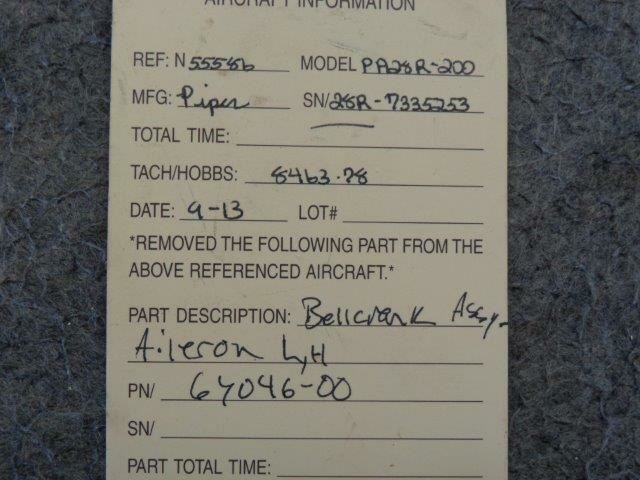 AIRCRAFT INFORMATION
REF: N 55586 MODEL PA28R-200
MFG: Piper SN/ 28R-7335253
TOTAL TIME:
TACH/HOBBS: 8463.78
DATE: 9-13 LOT#
*REMOVED THE FOLLOWING PART FROM THE
ABOVE REFERENCED AIRCRAFT.*
PART DESCRIPTION: Bellcrank Assy.
Aileron L,H
PN/ 67046-00
SN/
PART TOTAL TIME: